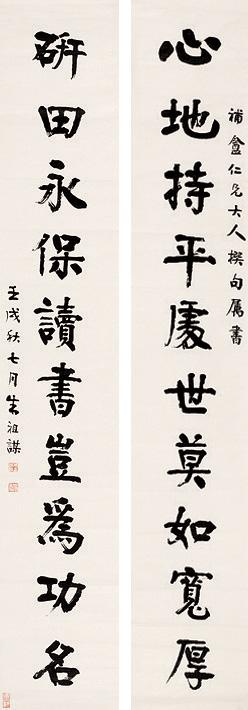 補盦仁兄大人撰句属書
心地持平處世莫如寬厚
硏田永保讀書豈爲功名
壬戌秋七月朱祖謀